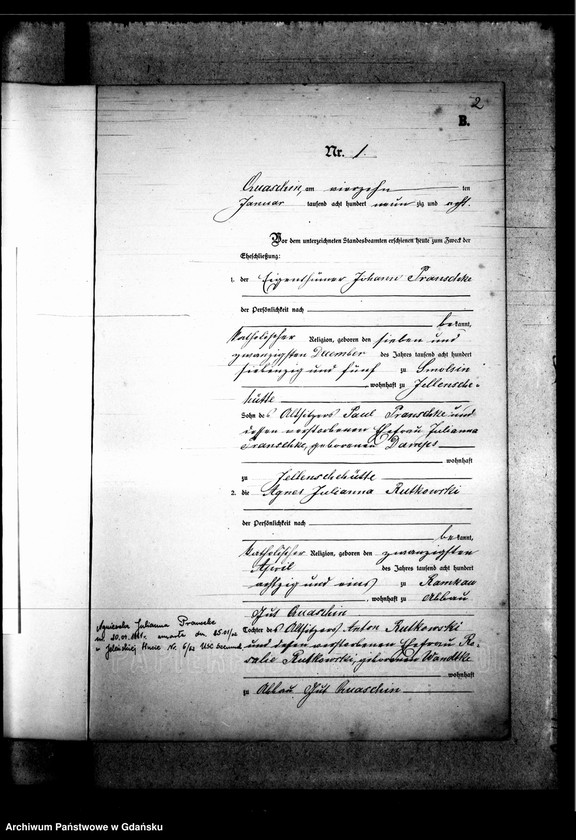 2
B.
Nr. 1.
Quaschin, am vierzehn ten
Januar tausend acht hundert neun zig und acht.
Vor dem unterzeichneten Standesbeamten erschienen heute zum Zweck der
Eheschließung:
1. der Eigenthümer Johann Pranschke
der Persönlichkeit nach
bekannt,
katholischer Religion, geboren den sieben und
zwanzigsten December des Jahres tausend acht hundert
siebenzig und fünf zu Smolsin
, wohnhaft zu Jellensche-
hütte
Sohn des Altsitzers Paul Pranschke und
dessen verstorbenen Ehefrau Julianna
Pranschke, geborenen
wohnhaft
zu Jellenschehütte
2. die Agnes Julianna Rutkowski
der Persönlichkeit nach
bekannt,
katholischer Religion, geboren den zwanzigsten
April des Jahres tausend acht hundert
achtzig und eins zu Ramkau
, wohnhaft zu Abbau
Gut Quaschin
Tochter des Altsitzers Anton Rutkowski
und dessen verstorbenen Ehefrau Ro-
salie Rutkowski, geborenen Wandtke
wohnhaft
zu Abbau Gut Quaschin
Agnieszka Julianna
ur. 20.04.1881. zmarła dn.
w Jeleńskiej Hucie Nr. 5/62 USC Szemud
Archiwum Państwowe w Gdańsku